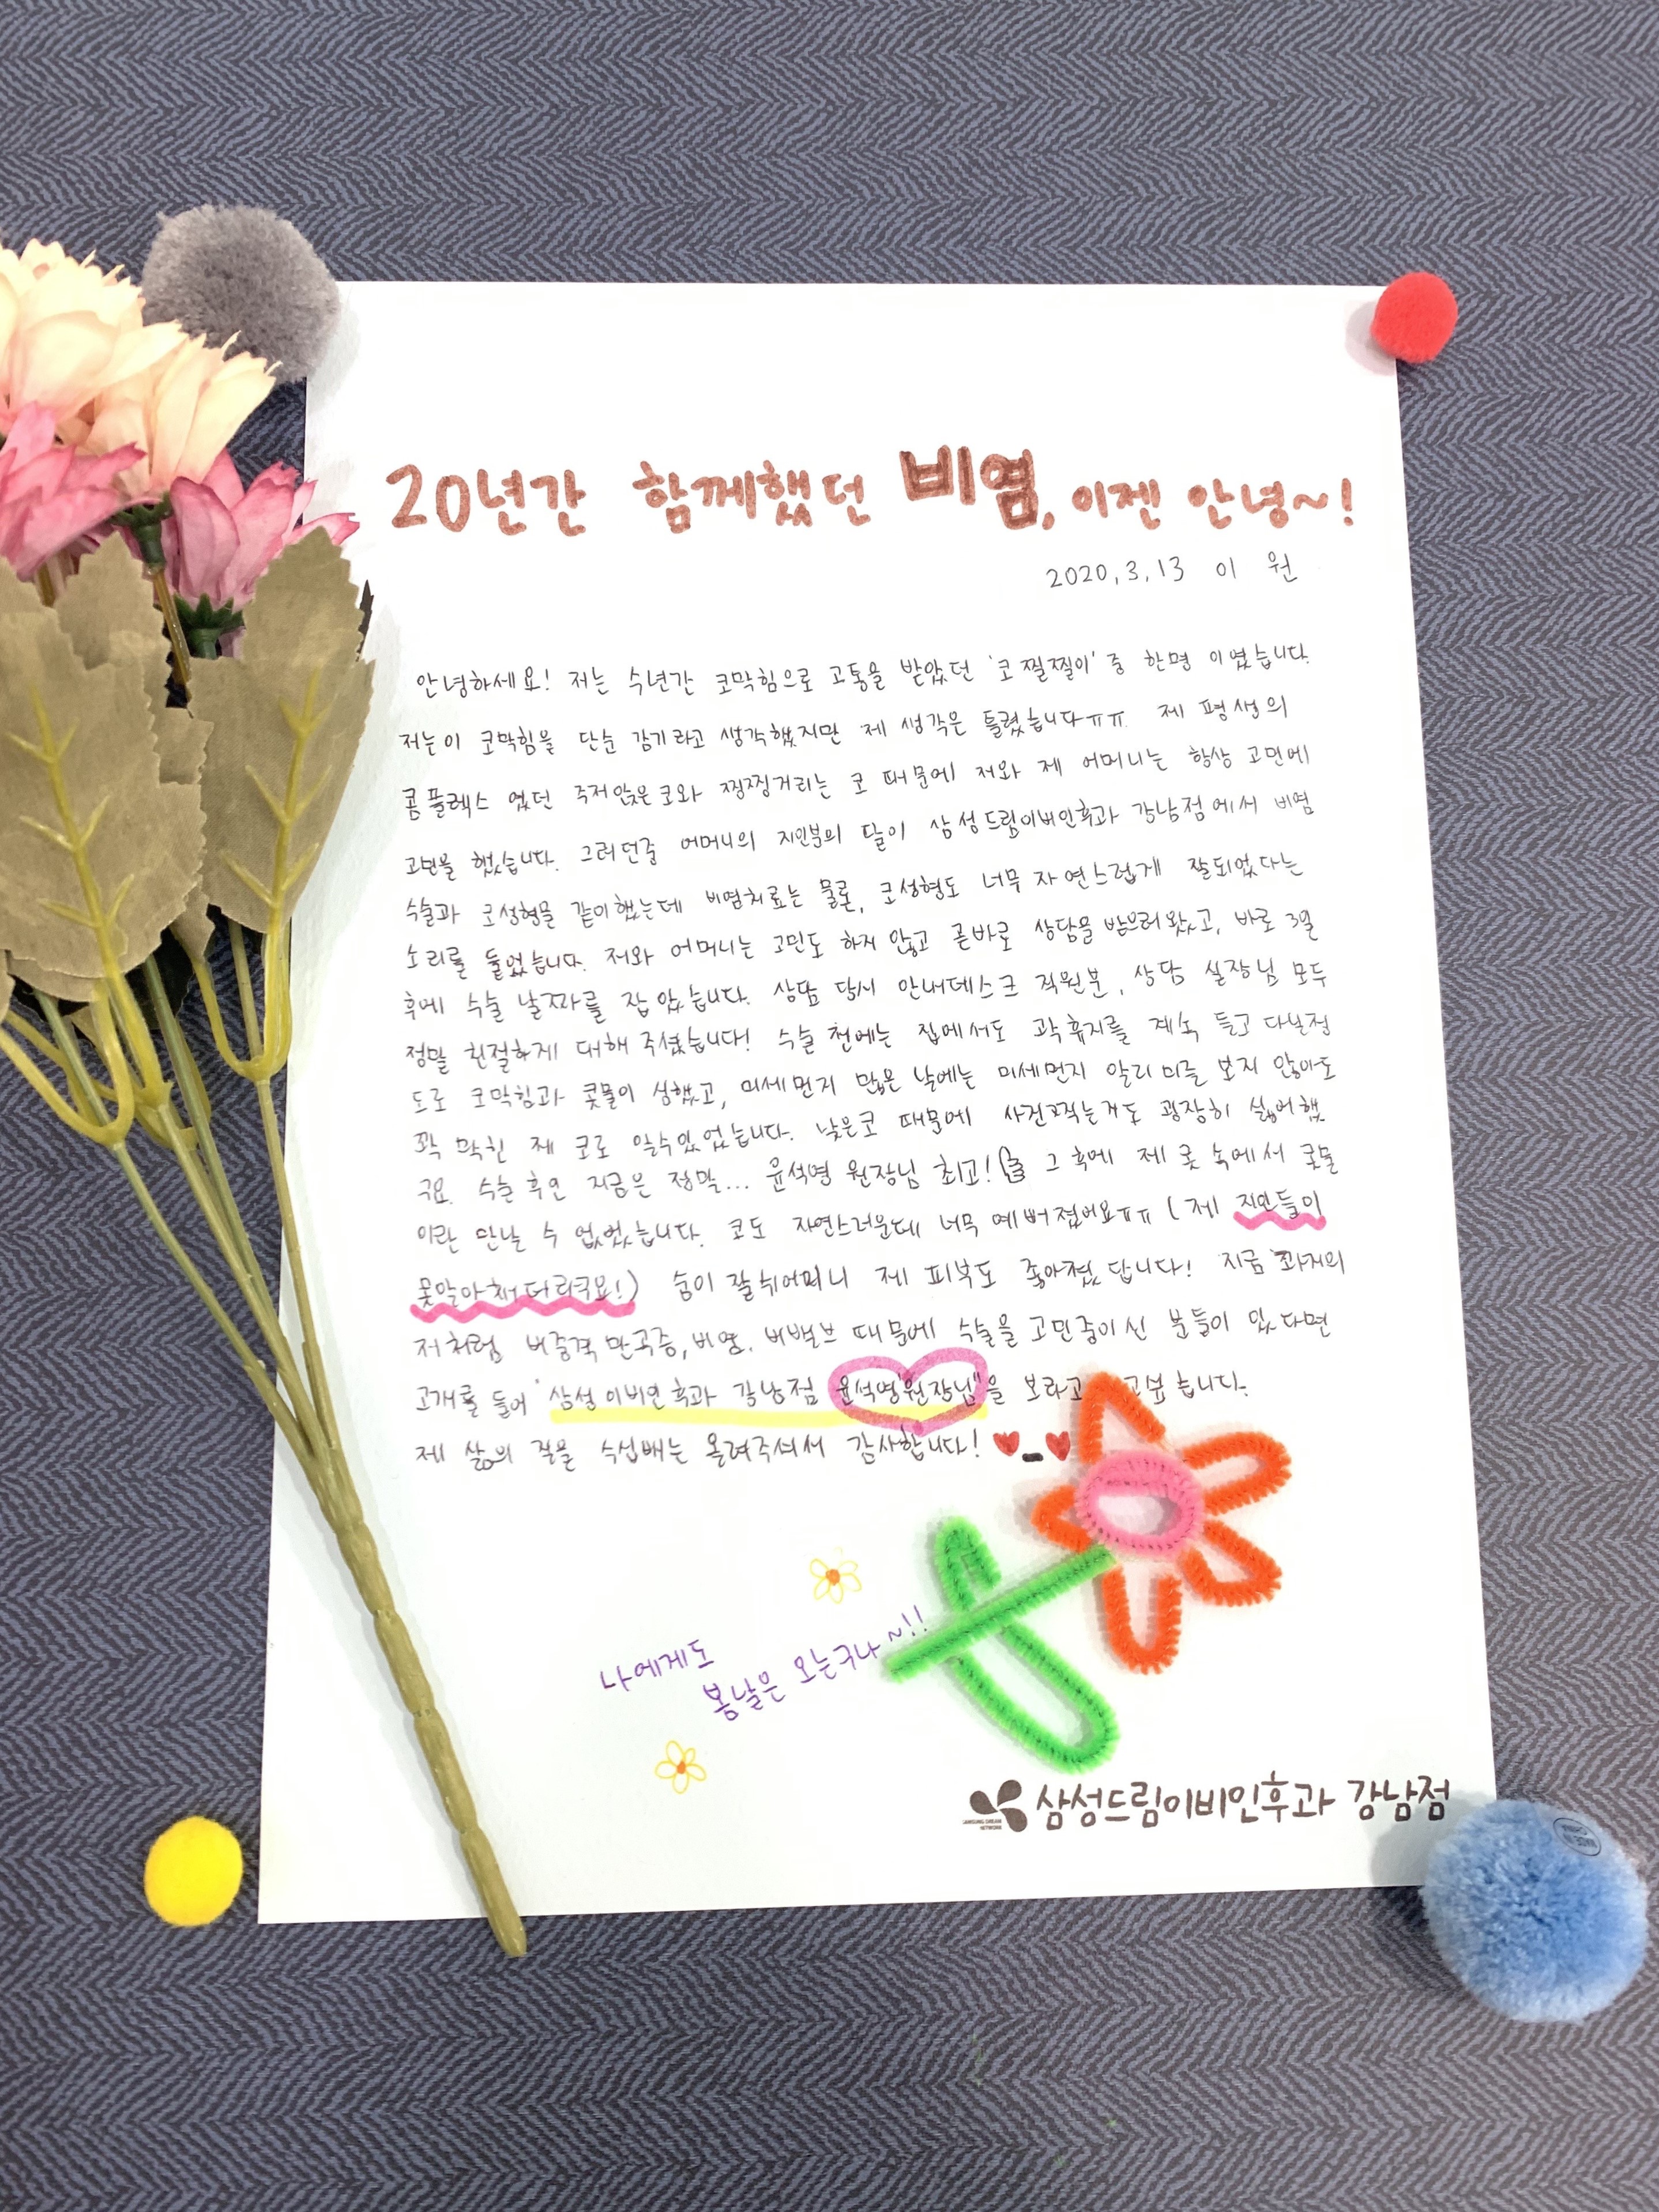 20년간 함께했던 비염, 이젠 안녕~!
2020.3.13 이 원
안녕하세요! 저는 수년간 코막힘으로 고통을 받았던 '코찔찔이' 중 한명 이였습니다.
저는 이 코막힘을 단순 감기라고 생각했지만 제 생각은 틀렸습니다ㅠㅠ 제 평생의
콤플렉스 였던 주저앉은 코와 찡찡거리는 코 때문에 저와 제 어머니는 항상 고민에
고민을 했습니다. 그러던중 어머니의 지인분의 딸이 삼성드림이비인후과 강남점에서 비염
수술과 코성형을 같이했는데 비염치료는 물론, 코성형도 너무 자연스럽게 잘되었다는
소리를 들었습니다. 저와 어머니는 고민도 하지 않고 곧바로 상담을 받으러왔고, 바로 3일
후에 수술 날짜를 잡았습니다. 상담 당시 안내데스크 직원분, 상담 실장님 모두
정말 친절하게 대해 주셨습니다! 수술 전에는 집에서도 곽휴지를 계속 들고 다닐정
도로 코막힘과 콧물이 심했고, 미세먼지 많은 날에는 미세먼지 알리미를 보지 않아도
꽉 막힌 제 코로 알수있었습니다. 낮은코 때문에 사진찍는거도 굉장히 싫어했
구요. 수술 후인 지금은 정말... 윤석영 원장님 최고! 그 후에 제 콧 속에서 콧물
이란 만날 수 없었습니다. 코도 자연스러운데 너무 예뻐졌어요ㅠㅠ (제 지인들이
못알아채더라구요!) 숨이 잘쉬어지니 제 피부도 좋아졌답니다! 지금 과거의
저처럼 비중격만곡증, 비염, 비밸브 때문에 수술을 고민중이신 분들이 있다면
고개를 들어 "삼성이비인후과 강남점 윤석영 원장님"을 보라고 습니다.
제 삶의 질을 수십배는 올려주셔서 감사합니다!
나에게도
봄날은 오는구나~!!
삼성드림이비인후과 강남점
SAMSUNG DREAM
NETWORK
MADE IN
CHINA